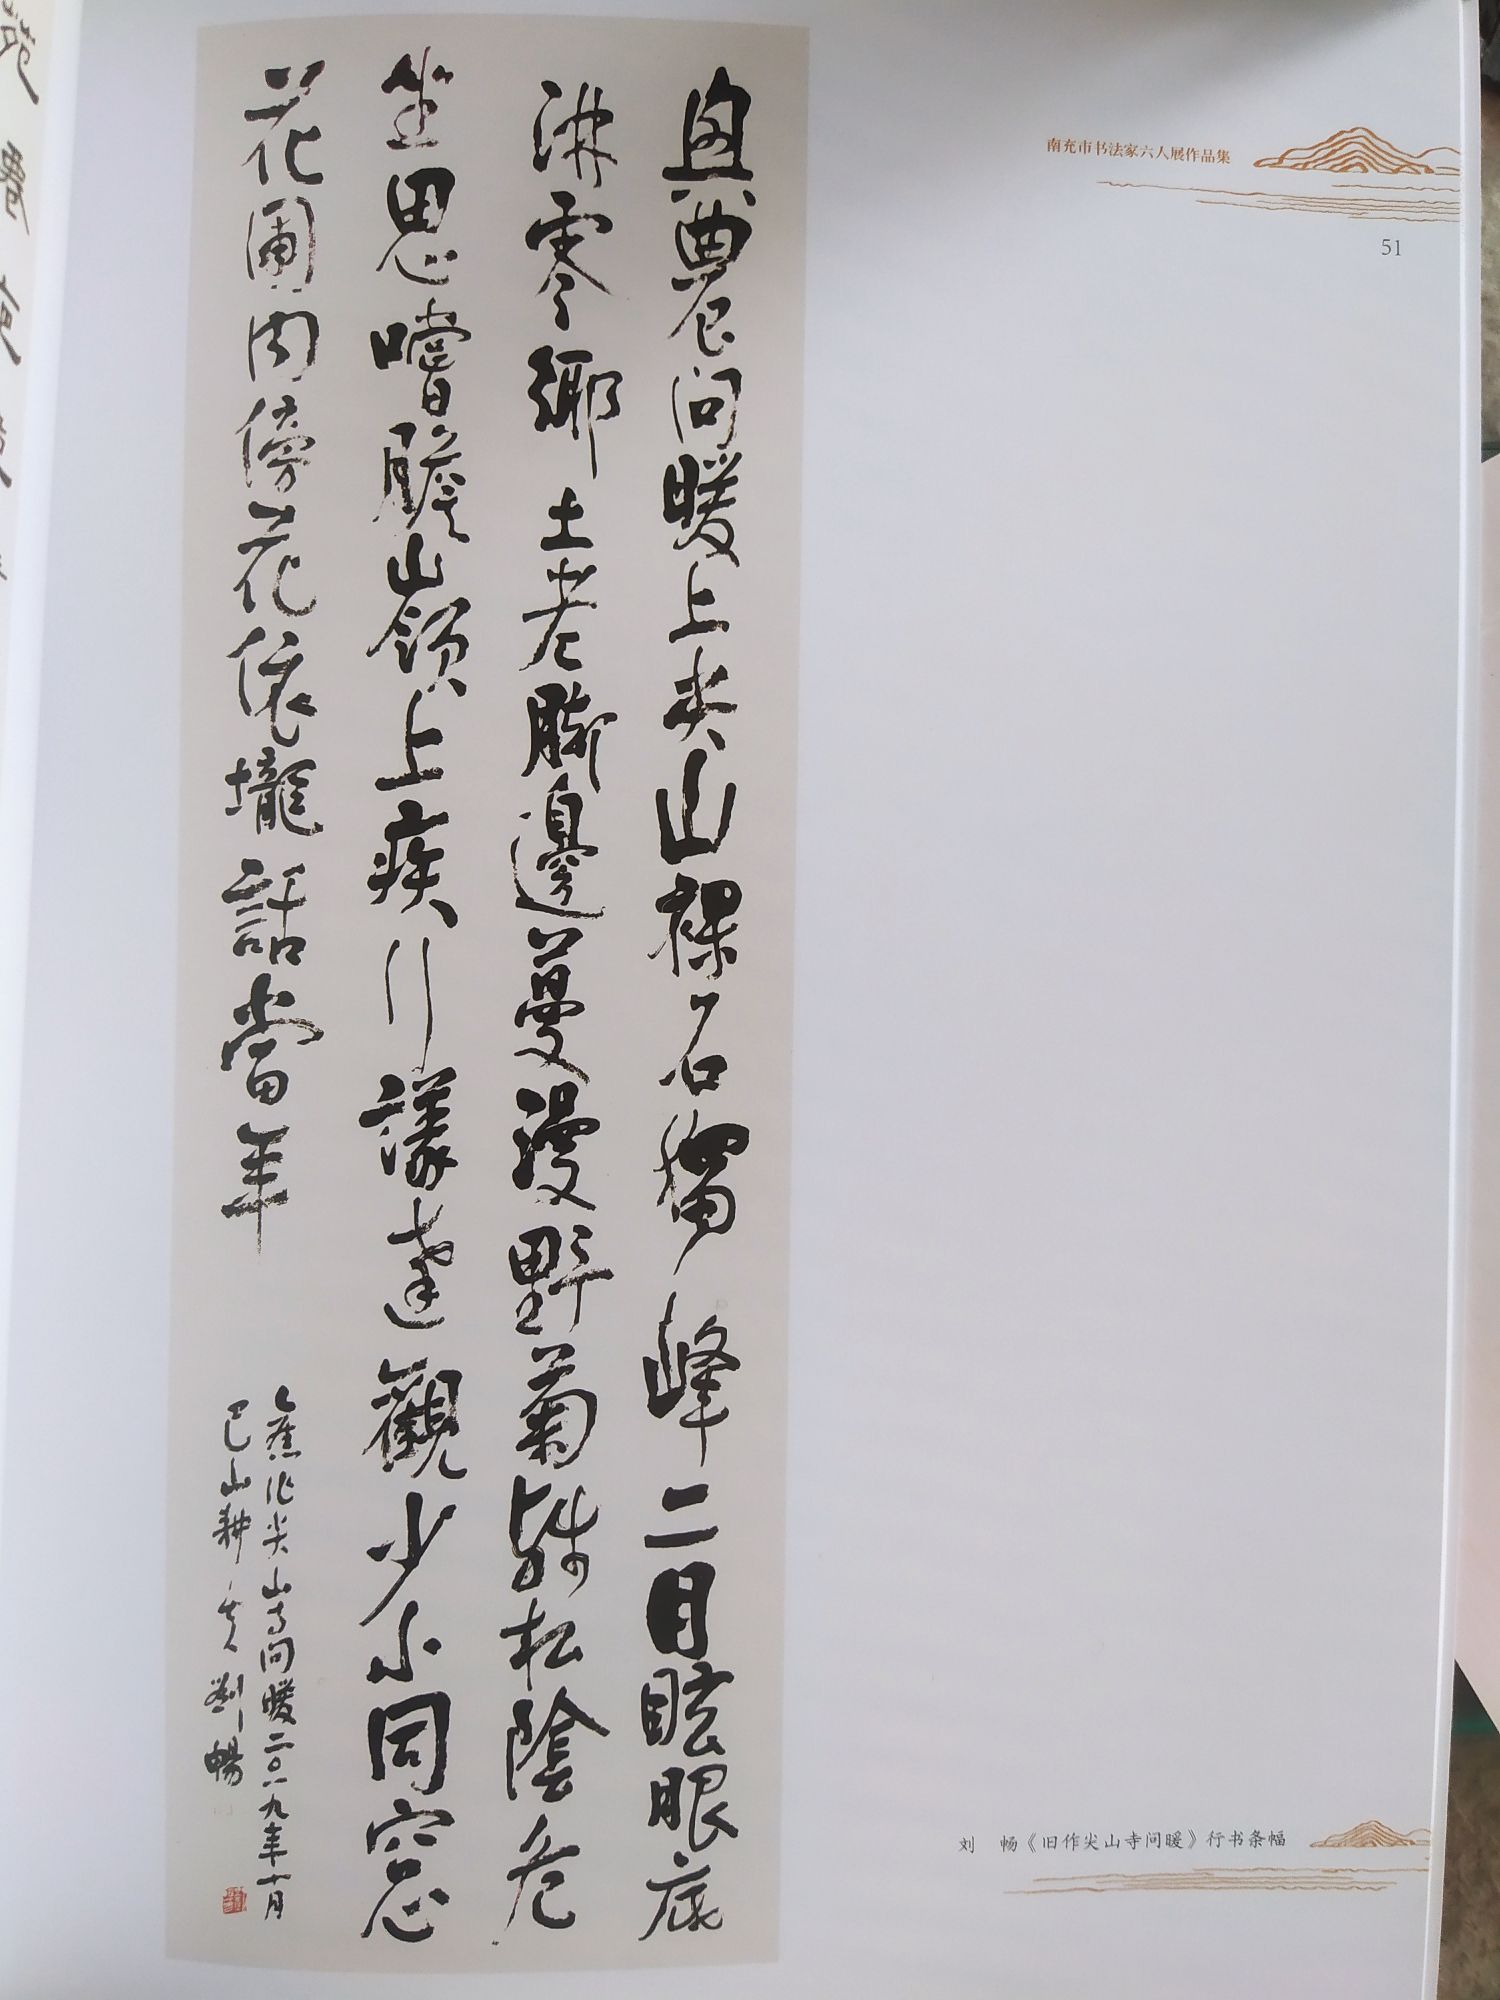 南充市书法家六人展作品集
51
与农问暖上尖山裸石独峰二目眩眼底
涕零乡土老脚边蔓漫野菊    松阴危
坐思嚐胆山岭上疾行谋达观少小同窗
花圃内傍花依垅話當年
旧作尖山寺问暖二〇一九年十月
巴山耕夫劉暢
刘 畅《旧作尖山寺问暖》行书条幅